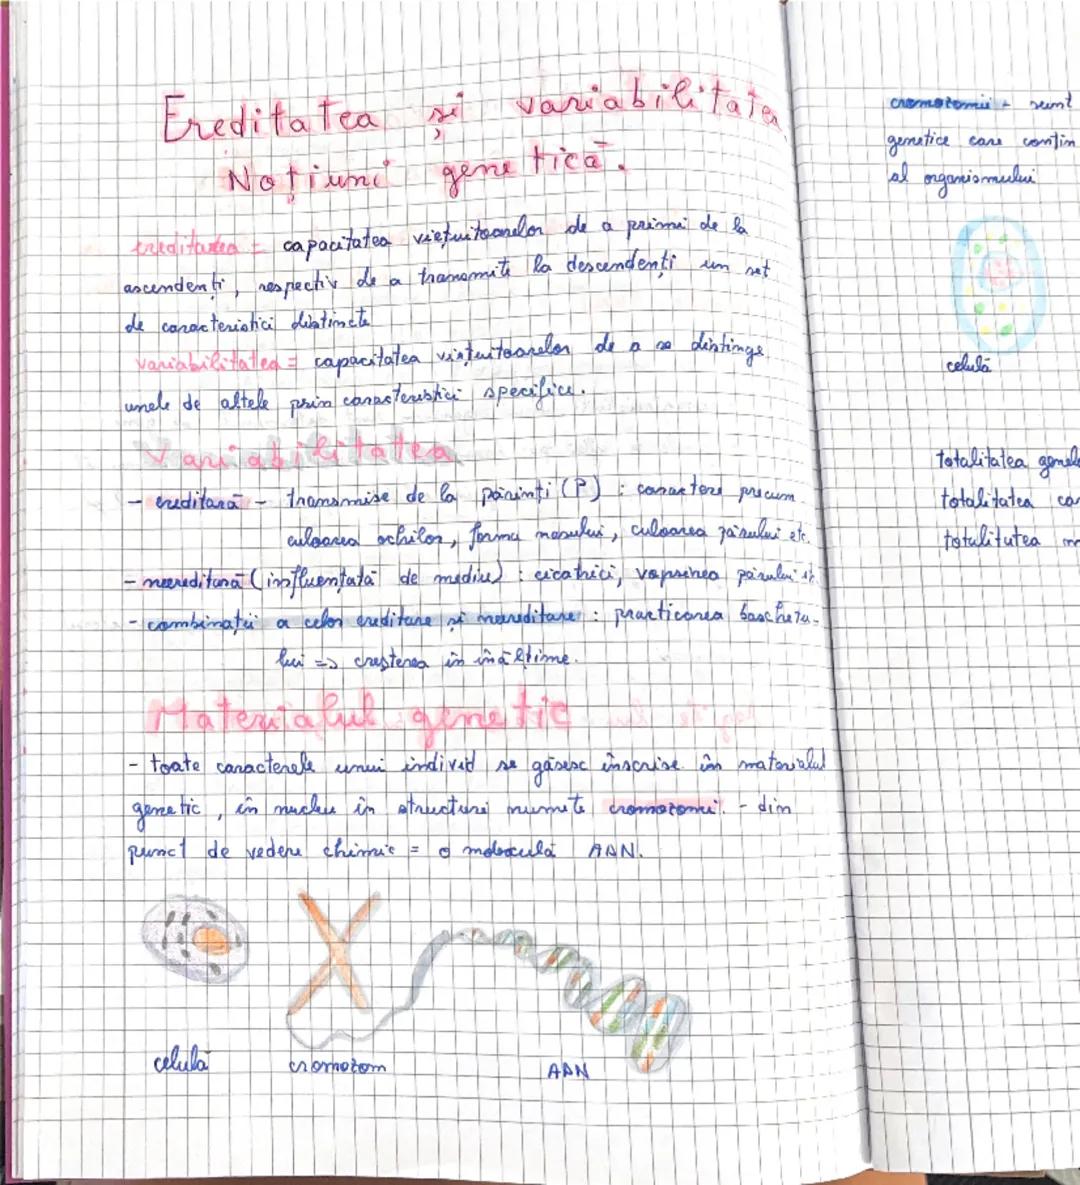 Ereditatea și variabilitatea
Noțiuni genetică.
ereditatea = capacitatea viețuitoarelor de a primi de la
ascendenți, respectiv de a transmite la descendenți un set
de caracteristici distincte
variabilitatea = capacitatea viețuitoarelor de a se distinge
unele de altele prin caracteristici specifice.
Variabilitatea
- ereditară - transmise de la părinți (P) : caractere precum
culoarea ochilor, forma nasului, culoarea părului etc.
- neereditară (influențată de mediu) : cicatrici, vopsirea părului
- combinații a celor ereditare și neereditare : practicarea baschetu-
lui => creșterea în înălțime.
Materialul genetic
- toate caracterele unui individ se găsesc înscrise în materialul
genetic, în nucleu în structuri numite cromozomi. - din
punct de vedere chimic = o moleculă ADN.
celulă
cromozom
ADN
cromozomii - sunt
genetice care conțin
al organismului
celulă
totalitatea genelo
totalitatea
totalitatea